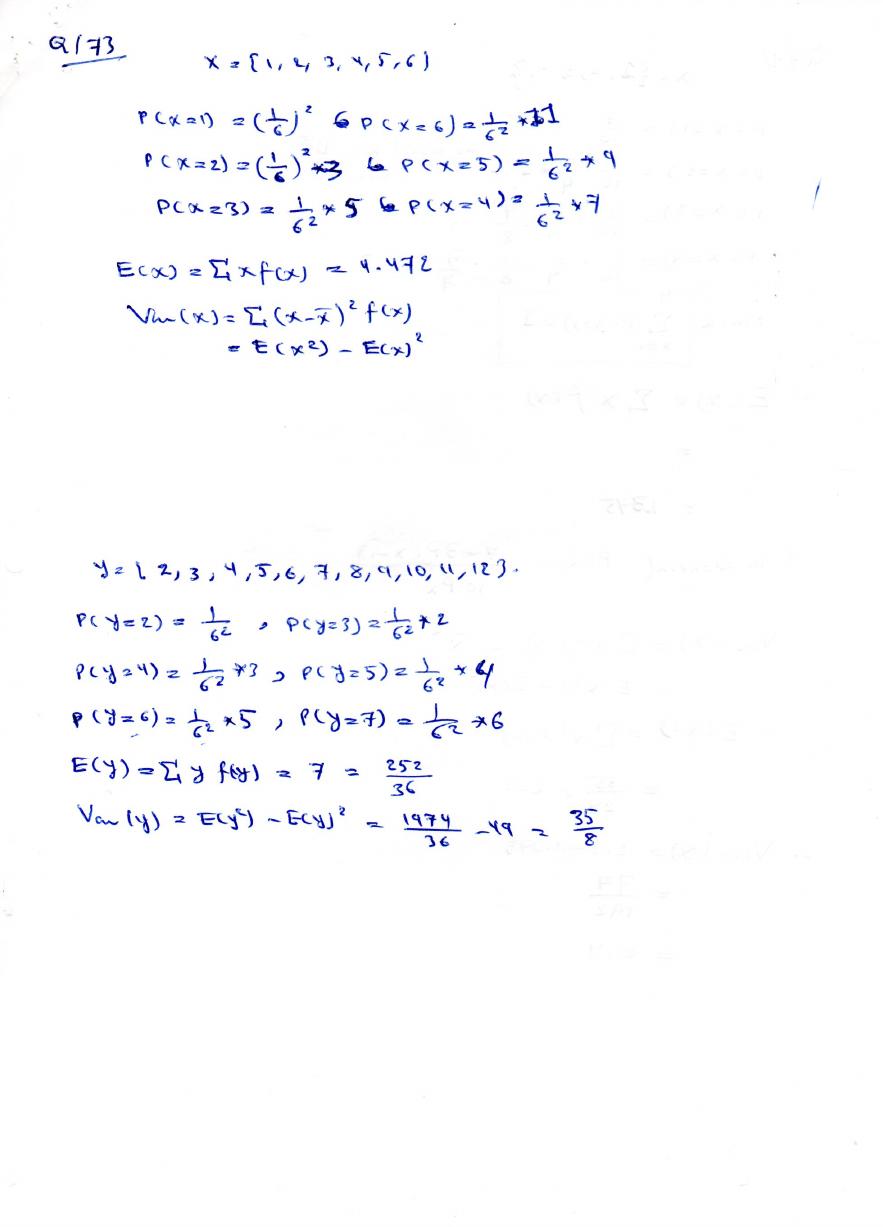 Q/73
X = {1, 2, 3, 4, 5, 6}
P(X=1) = (1/6)² 6 P(X=6) = 1/6² * 11
P(X=2) = (1/6)² *3 6 P(X=5) = 1/6² * 9
P(X=3) = 1/6² * 5 6 P(X=4) = 1/6² * 7
E(x) = Σ x f(x) = 4.472
Var(x) = Σ (x-x̄)² f(x)
= E(x²) - E(x)²
y = { 2, 3, 4, 5, 6, 7, 8, 9, 10, 11, 12 }.
P(y=2) = 1/6² , P(y=3) = 1/6² * 2
P(y=4) = 1/6² *3 , P(y=5) = 1/6² * 4
P(y=6) = 1/6² *5 , P(y=7) = 1/6² *6
E(y) = Σ y f(y) = 7 = 252/36
Var(y) = E(y²) - E(y)² = 1974/36 - 49 = 35/8